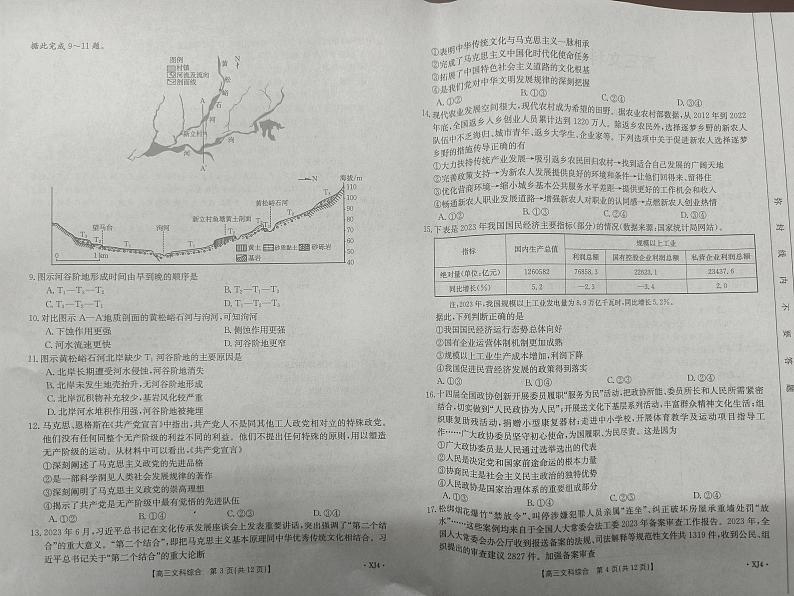 据此完成9～11题。
图例
村镇
河流及流向
剖面线
N
黄
松
峪
石
河
A
新立村
泃
河
A′
N
海拔/m
110
100
90
80
70
60
50
40
望马台
泃河
新立村鱼塘黄土剖面
黄松峪石河
T3
T2
T1
0 1 km
黄土 砂质黏土 砂砾岩
基岩
9. 图示河谷阶地形成时间由早到晚的顺序是
10. 对比图示A—A′地质剖面的黄松峪石河与泃河,可知泃河
A. 下蚀作用更强 B. 侧蚀作用更强
C. 河水流速更快 D. 河谷阶地更窄
11. 图示黄松峪石河北岸缺少T1河谷阶地的主要原因是
A. 北岸长期遭受河水侵蚀,河谷阶地消失
B. 北岸未发生地壳抬升,河谷阶地无形成
C. 北岸沉积物补充较少,基岩风化较严重
D. 北岸河水堆积作用强,河谷阶地被掩埋
12. 马克思、恩格斯在《共产党宣言》中指出,共产党人不是同其他工人政党相对立的特殊政党。
他们没有任何同整个无产阶级的利益不同的利益。他们不提出任何特殊的原则,用以塑造
无产阶级的运动。从材料中可以看出,《共产党宣言》
①深刻阐述了马克思主义政党的先进品格
②是一部科学洞见人类社会发展规律的著作
③深刻阐述了马克思主义政党的崇高理想
④揭示了共产党是无产阶级中最有觉悟的先进队伍
A. ①② B. ①④ C. ②③ D. ③④
13. 2023年6月,习近平总书记在文化传承发展座谈会上发表重要讲话,突出强调了“第二个结
合”的重大意义。“第二个结合”,即把马克思主义基本原理同中华优秀传统文化相结合。习
近平总书记关于“第二个结合”的重大论断
【高三文科综合 第3页(共12页)】 ·XJ4·
①表明中华传统文化与马克思主义一脉相承
②完成了马克思主义中国化时代化使命任务
③拓展了中国特色社会主义道路的文化根基
④是我们党对中华文明发展规律的深刻把握
A. ①② B. ①③ C. ②④ D. ③④
14. 现代农业发展空间很大,现代农村成为希望的田野。据农业农村部数据,从2012年到2022
年底,全国返乡入乡创业人员累计达到1220万人。除返乡农民外,选择逐梦乡野的新农人
队伍中不乏海归、城市青年、返乡大学生、企业家等。下列选项中关于促进新农人选择逐梦
乡野的措施传导正确的有
①大力扶持传统产业发展→吸引返乡农民回归农村→找到适合自己发展的广阔天地
②完善政策支持→为新农人发展提供良好的环境和条件→让他们回得来、留得住
③优化营商环境→缩小城乡基本公共服务水平差距→提供更好的工作机会和收入
④畅通新农人职业发展道路→增强新农人对职业的认同感→点燃新农人创业热情
A. ①② B. ①③ C. ②④ D. ③④
15. 下表是2023年我国国民经济主要指标(部分)的情况(数据来源:国家统计局网站)。
指标 国内生产总值 规模以上工业
利润总额 国有控股企业利润总额 私营企业利润总额
绝对量(单位:亿元) 1260582 76858.3 22623.1 23437.6
同比增长(%) 5.2 −2.3 −3.4 2.0
注:2023年,我国规模以上工业发电量为8.9万亿千瓦时,同比增长5.2%。
据此,下列判断正确的是
①我国国民经济运行态势总体向好
②国有企业运营体制机制更加成熟
③规模以上工业生产成本增加,利润下降
④我国促进民营经济发展的政策得到落实
A. ①③ B. ①④ C. ②③ D. ②④
16. 十四届全国政协创新开展委员履职“服务为民”活动,把政协所能、委员所长和人民所需紧密
结合,切实做到“人民政协为人民”;开展送文化下基层系列活动,丰富群众精神文化生活;组
织爱国拥军活动;走进中小学校,开展体育教学及运动项目指导工
作……广大政协委员坚守初心使命,为国履职、为民尽责。这是因为
①广大政协委员是人民通过选举选出的代表
②人民是决定党和国家前途命运的根本力量
③协商民主是社会主义民主政治的独特优势
④人民政协是国家治理体系的重要组成部分
A. ①② B. ①③ C. ②④ D. ③④
17. 松绑烟花爆竹“禁放令”、叫停涉嫌犯罪人员亲属“连坐”、纠正破坏房屋承重墙处罚“放
水”……这些案例均来自于全国人大常委会法工委2023年备案审查工作报告。2023年,全
国人大常委会办公厅收到报送备案的法规、司法解释等规范性文件共1319件,收到公民、组
织提出的审查建议2827件。加强备案审查
【高三文科综合 第4页(共12页)】 ·XJ4·
答
封
线
内
不
要
答
题